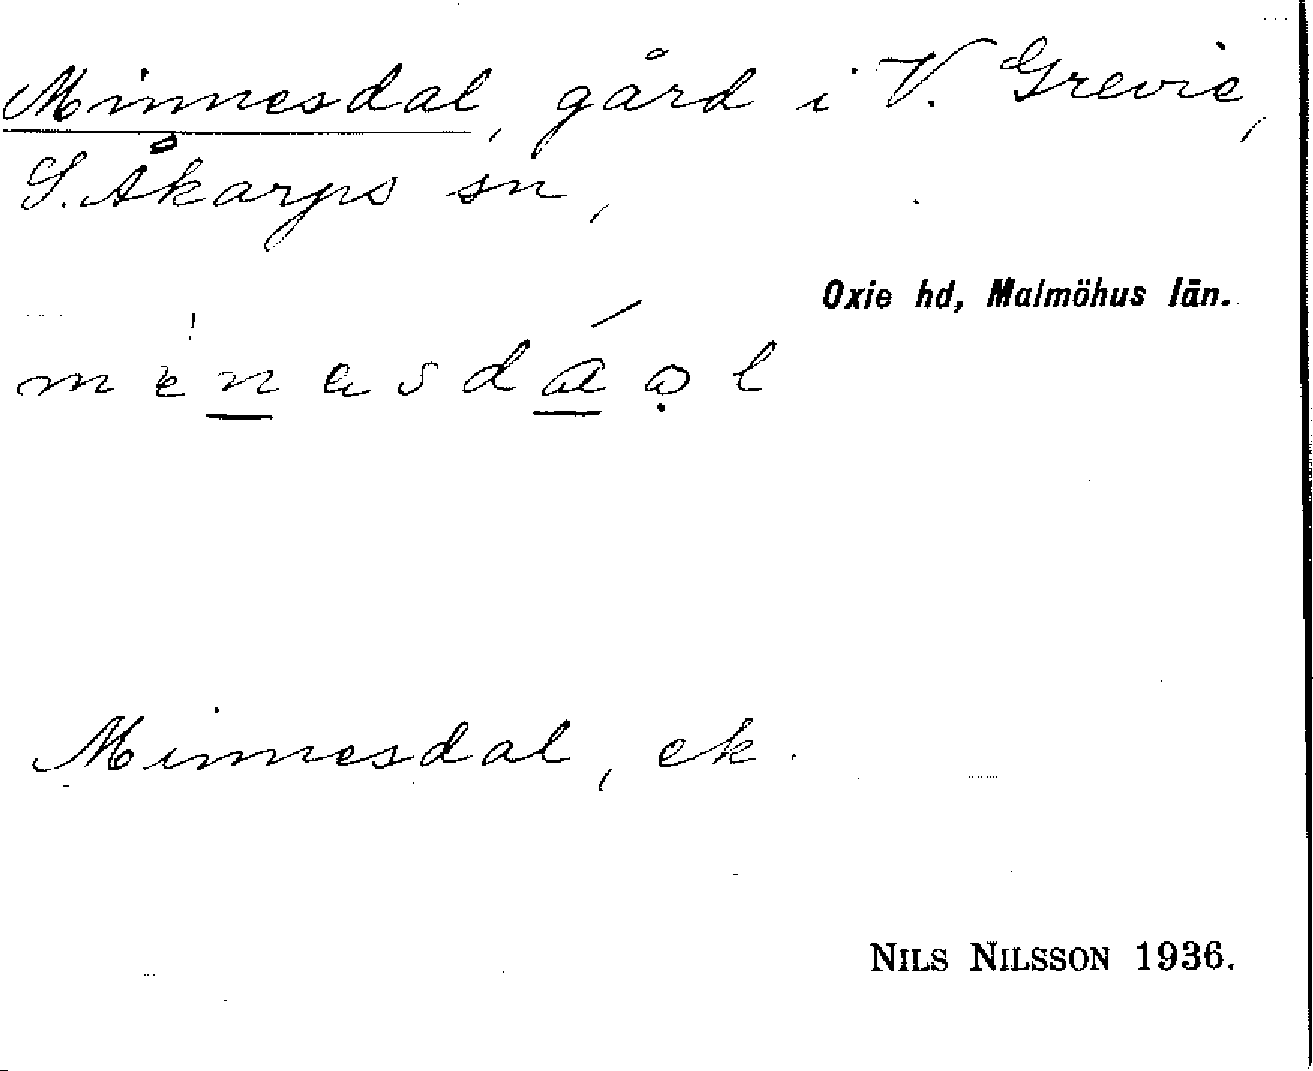 Minnesdal, gård i V. Grevie,
S. Åkarps sn,
Oxie hd, Malmöhus län.
Minnesdal, ek.
NILS NILSSON 1936.